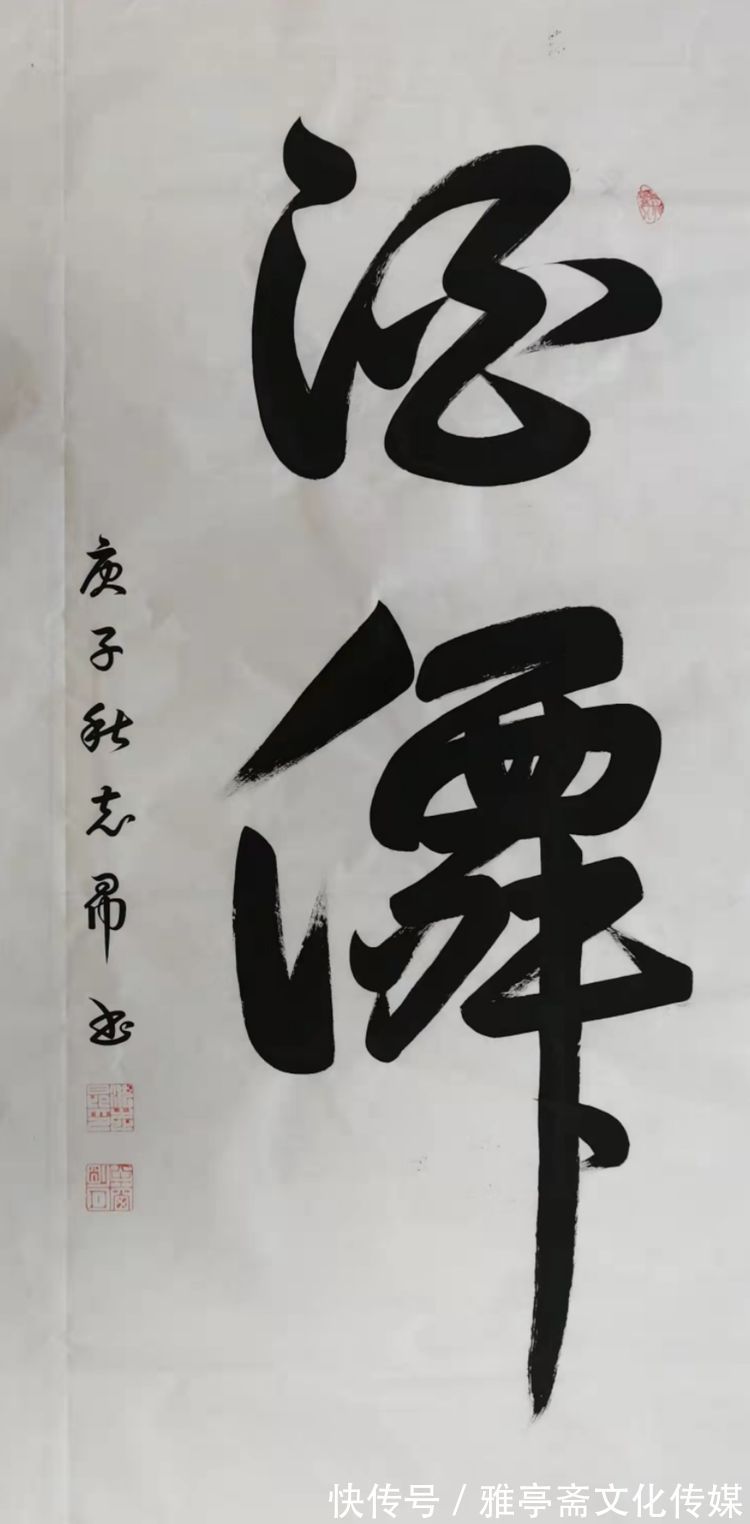 酒僊
庚子秋志书
快传号 / 雅亭斋文化传媒